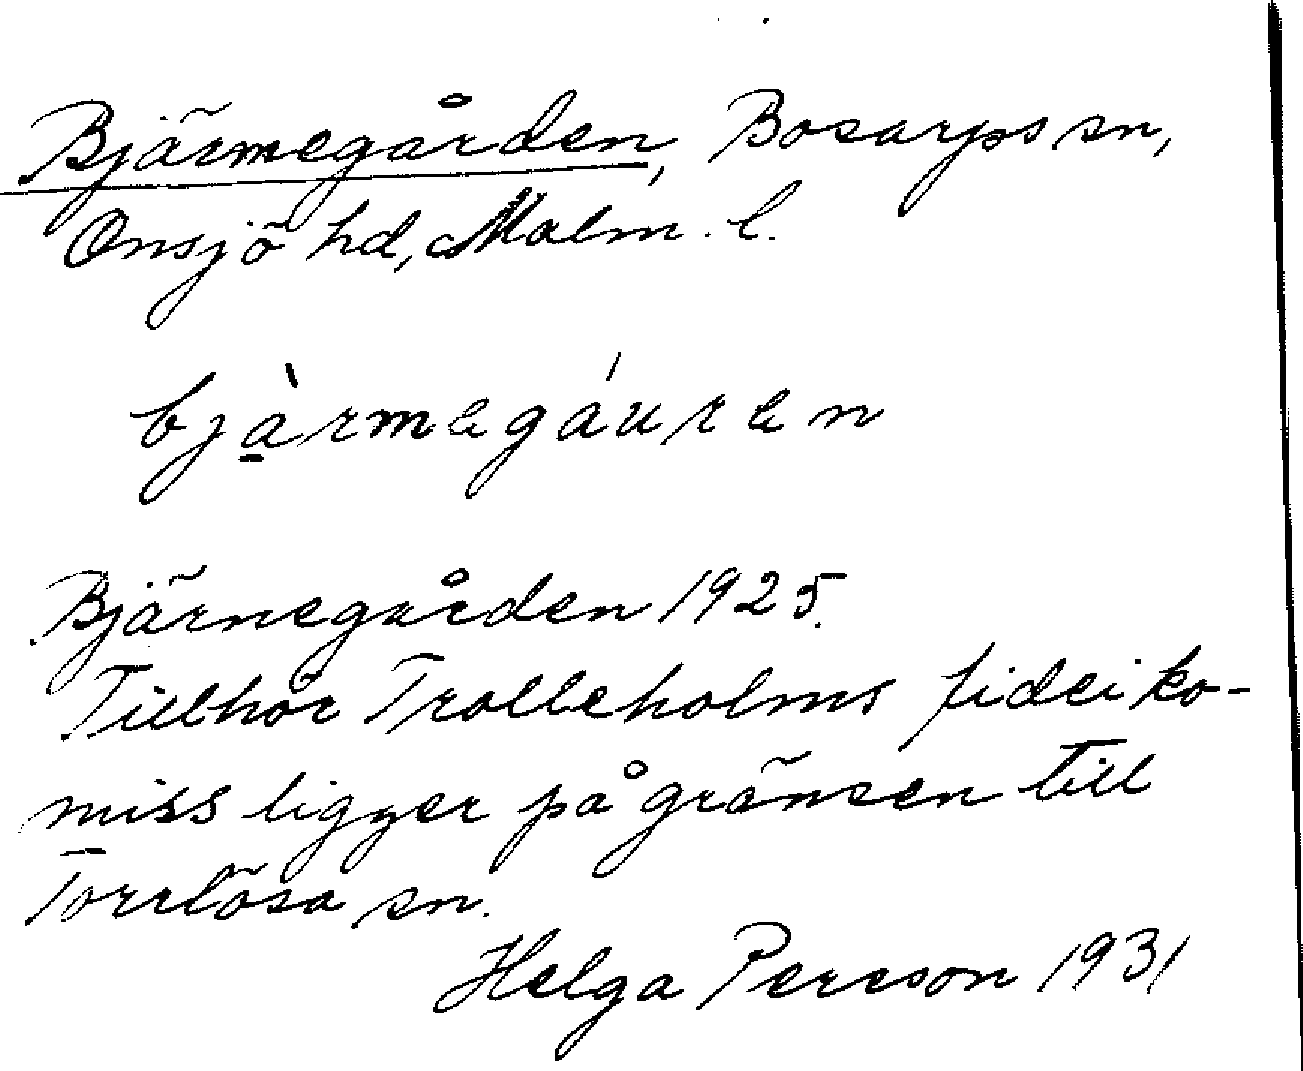 Bjärmegården, Bosarps sn,
Onsjö hd, Malm. l.
bjàrmegáuren
Bjärnegården 1925.
Tillhör Trolleholms fideiko-
miss ligger på gränsen till
Torrlösa sn.
Helga Persson 1931